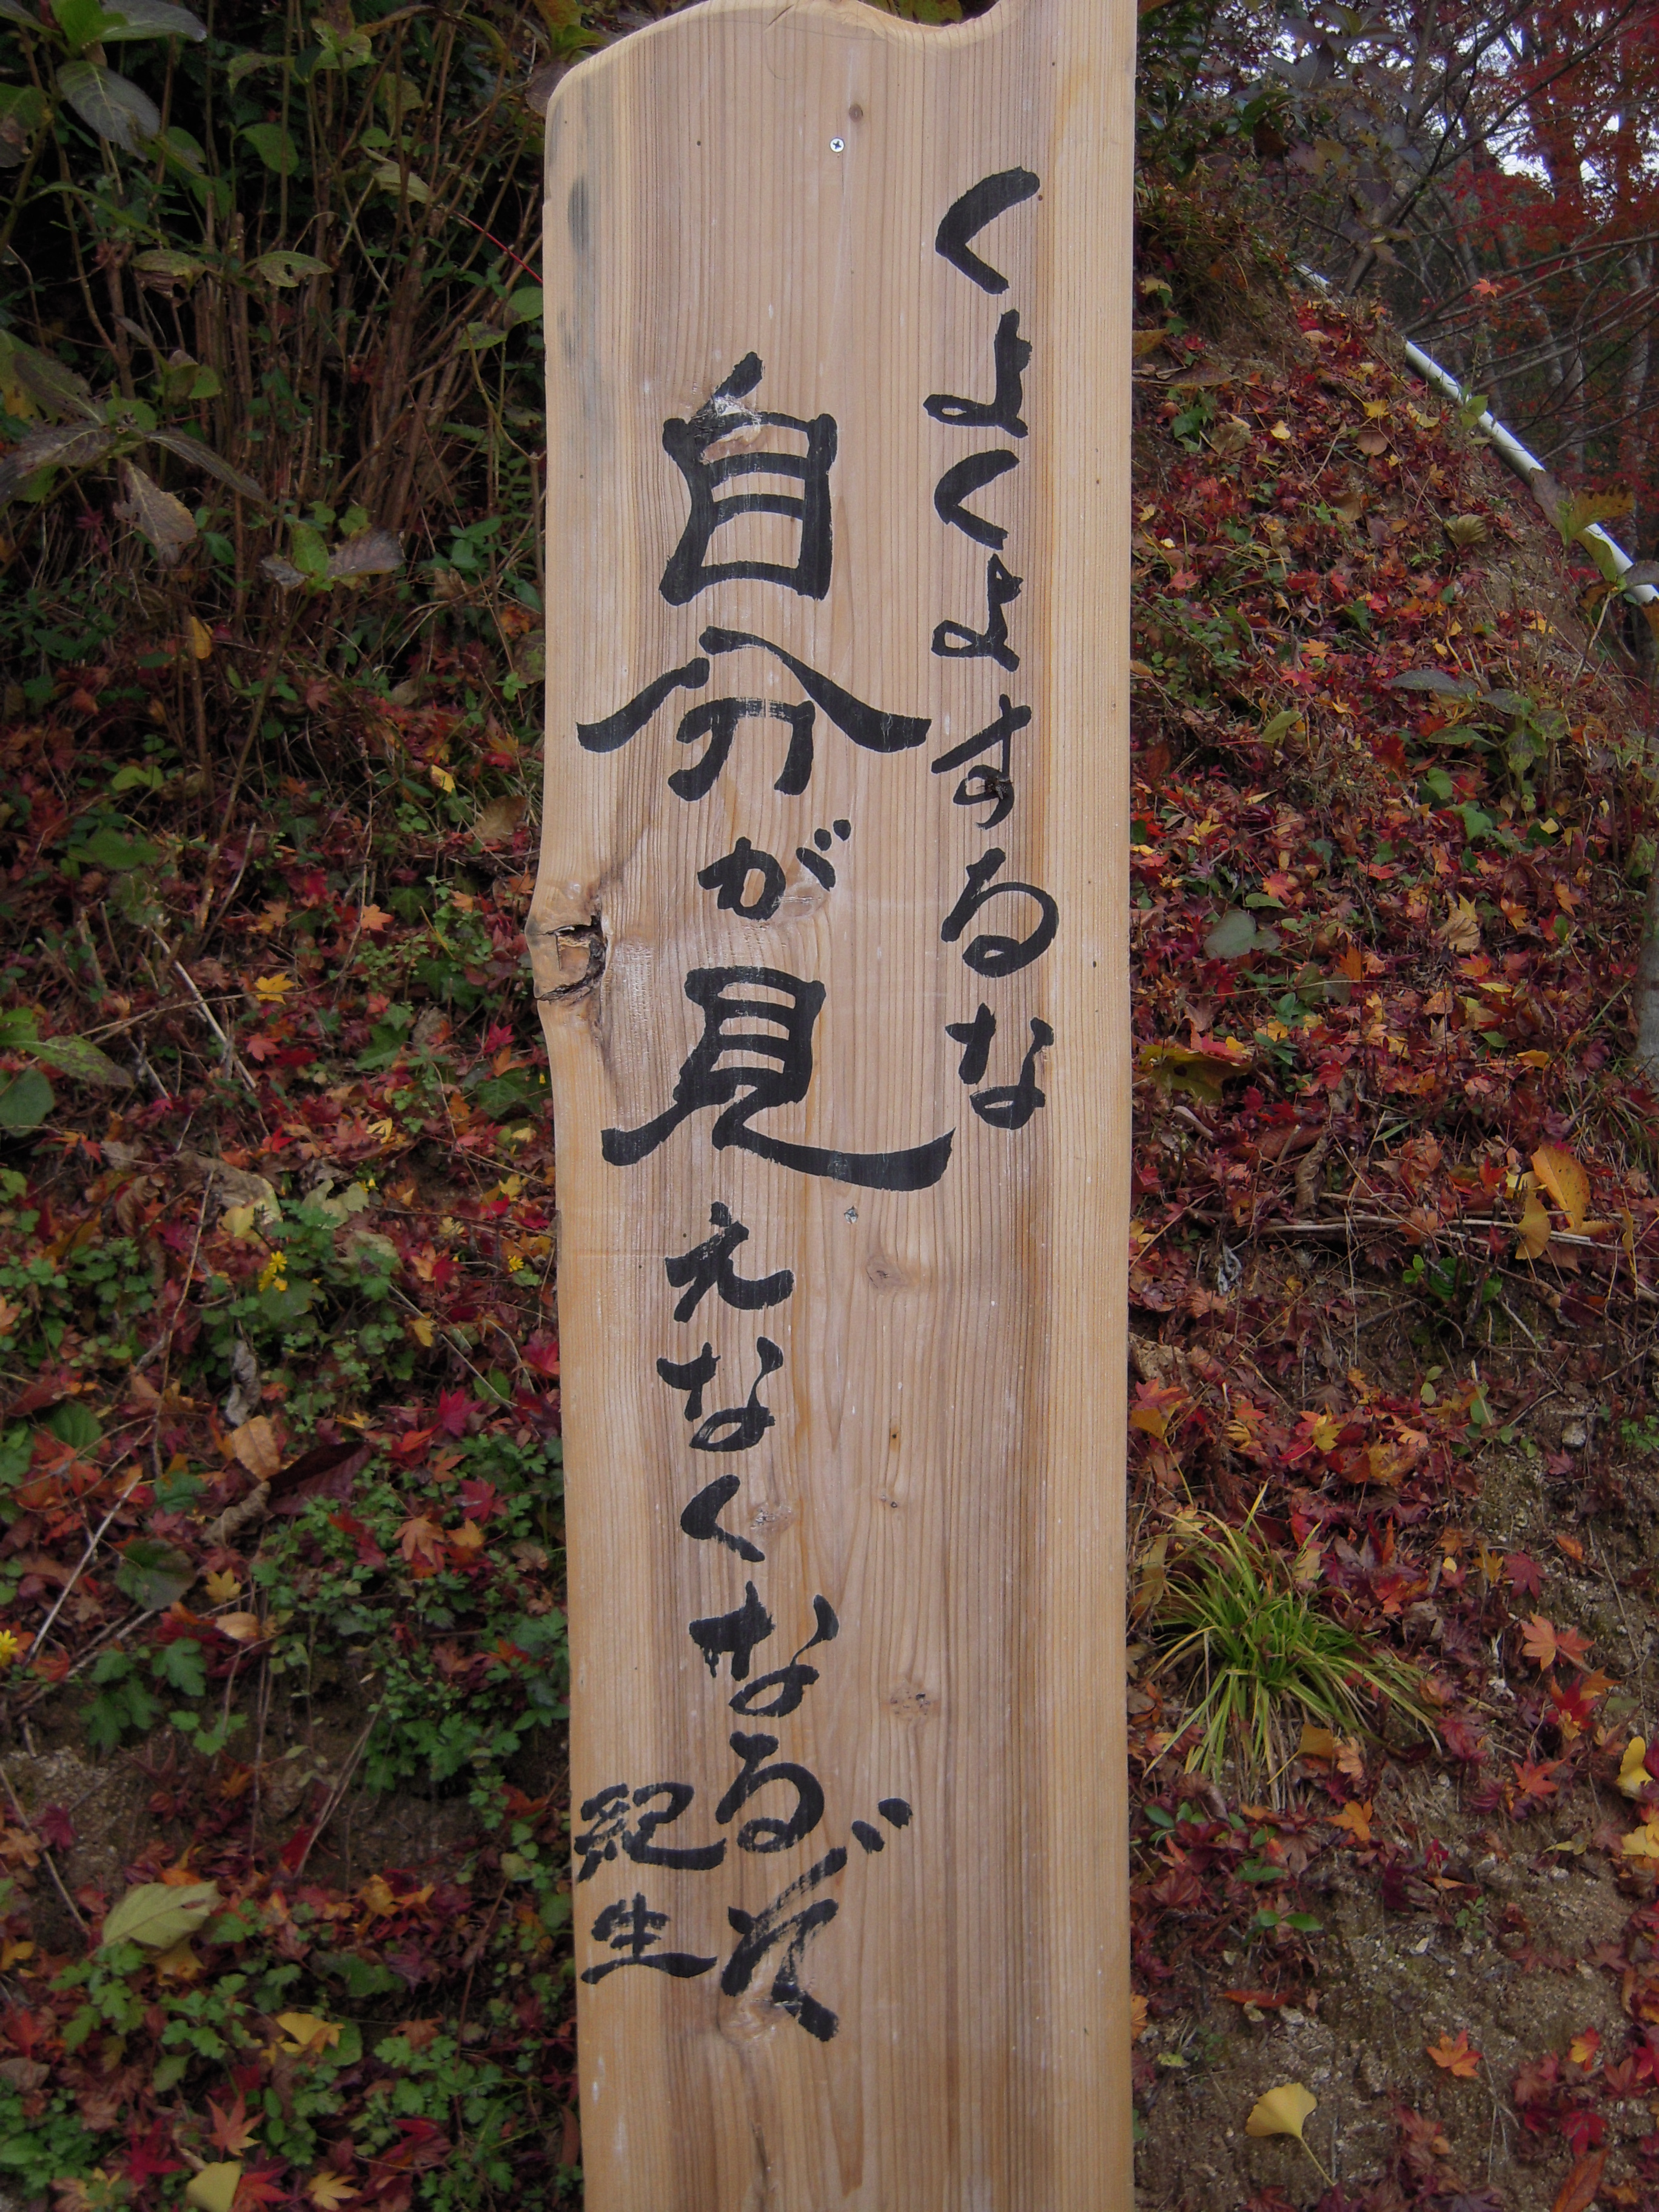 くよくよするな
自分が見えなくなるぞ
紀生